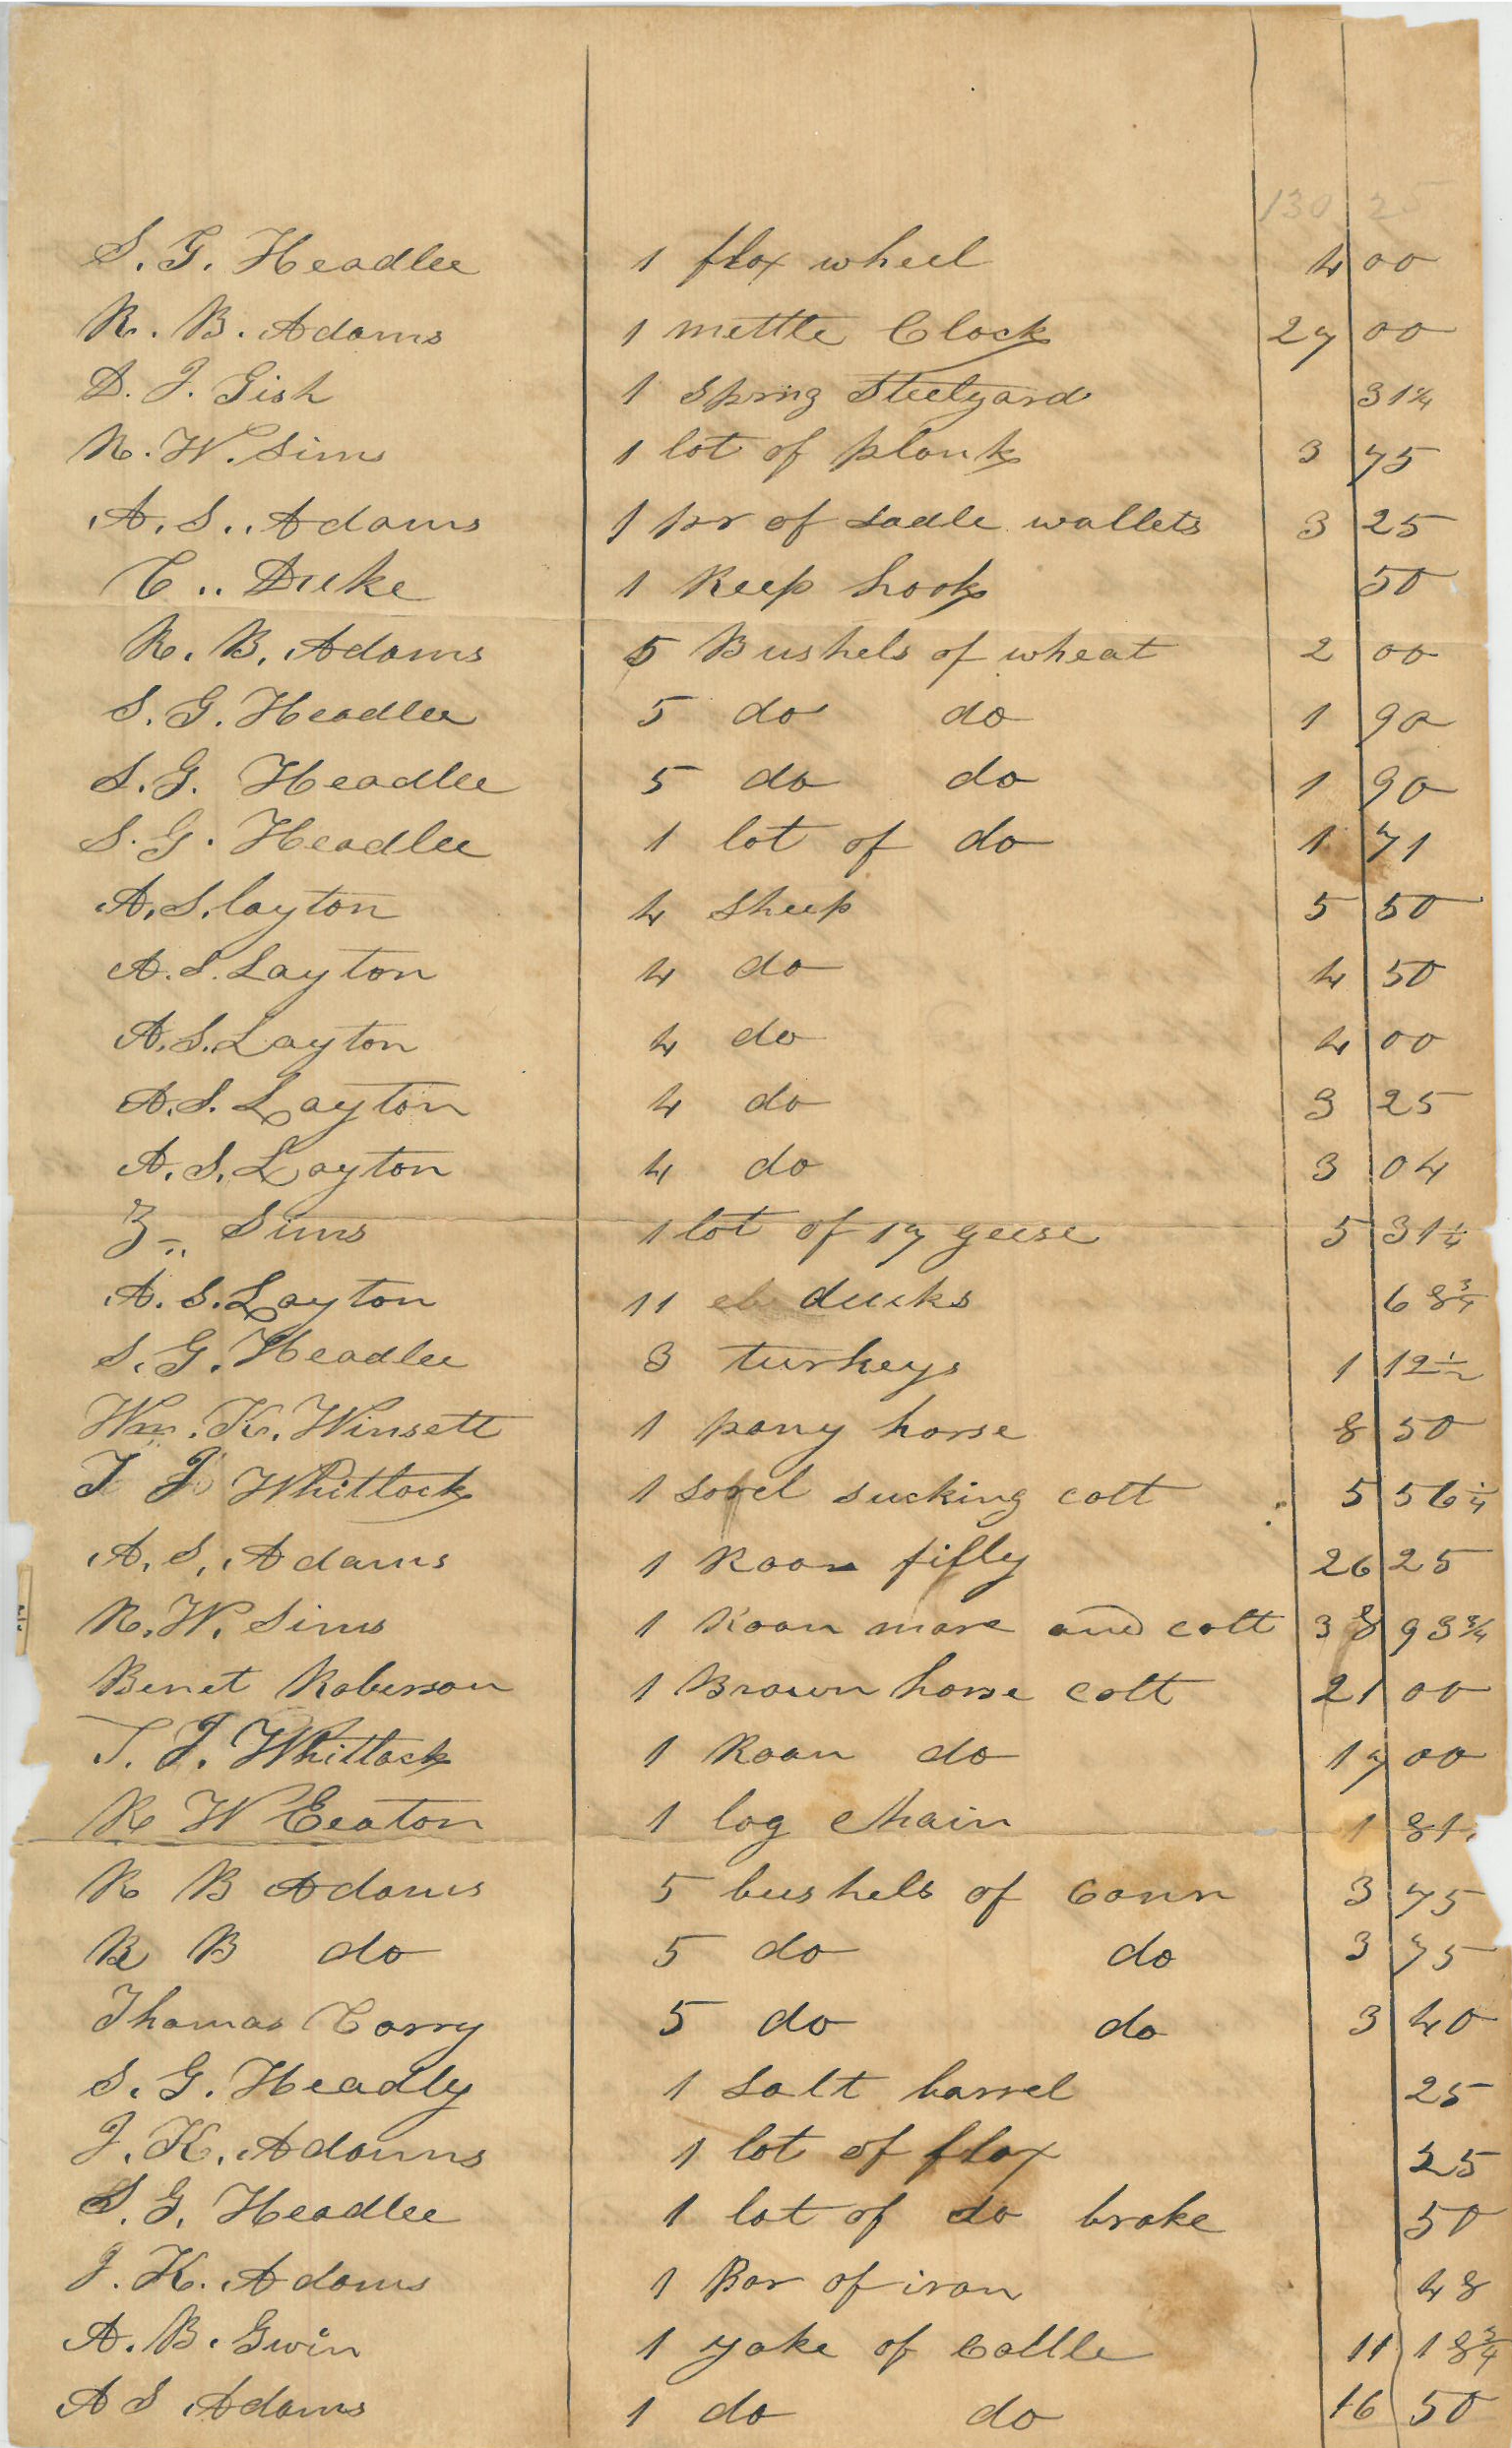 130 25
S. G. Headlee 1 flax wheel 4 00
R. B. Adams 1 mettle Clock 27 00
D. J. Gish 1 Spring Steelyard 31 1/4
R. W. Sims 1 lot of plank 3 75
A. S. Adams 1 pr of Sadle wallets 3 25
C.. Duke 1 Reep hook 50
R. B. Adams 5 Bushels of wheat 2 00
S. G. Headlee 5 do do 1 90
S. G. Headlee 5 do do 1 90
S. G. Headlee 1 lot of do 1 71
A. S. layton 4 Sheep 5 50
A. S. Layton 4 do 4 50
A. S. Layton 4 do 4 00
A. S. Layton 4 do 3 25
A. S. Layton 4 do 3 04
Z.. Sims 1 lot of 17 geese 5 31 1/4
A. S. Layton 11 ducks 68 3/4
S. G. Headlee 3 turkeys 1 12 1/2
Wm. K. Winsett 1 pony horse 8 50
T J Whitlock 1 Sorel sucking colt 5 56 1/4
A. S. Adams 1 Roan filly 26 25
R. W. Sims 1 Roan mare and colt 38 93 3/4
Benet Roberson 1 Brown horse colt 21 00
T. J. Whitlock 1 Roan do 17 00
R W Eeaton 1 log Chain 1 81
R B Adams 5 bushels of Corn 3 75
R B do 5 do do 3 75
Thomas Corry 5 do do 3 40
S. G. Headly 1 Salt barrel 25
J. K. Adams 1 lot of flax 25
S. G. Headlee 1 lot of do brake 50
J. K. Adams 1 Bar of iron 48
A. B. Gwin 1 yoke of Cattle 11 18 3/4
A S Adams 1 do do 16 50